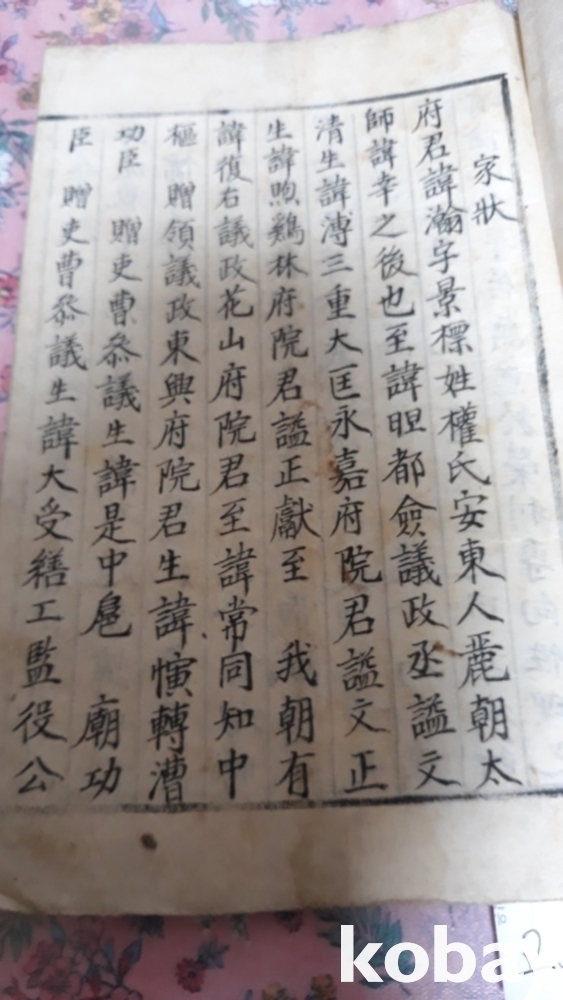 家狀
府君諱瀚字景標姓權氏安東人麗朝太
師諱幸之後也至諱㫜都僉議政丞謚文
清生諱溥三重大匡永嘉府院君謚文正
生諱煦鷄林府院君謚正獻至 我朝有
諱復右議政花山府院君至諱常同知中
樞 贈領議政東興府院君生諱愼轉漕
功臣 贈吏曹叅議生諱是中扈 廟功
臣 贈吏曹叅議生諱大受繕工監役公
koba